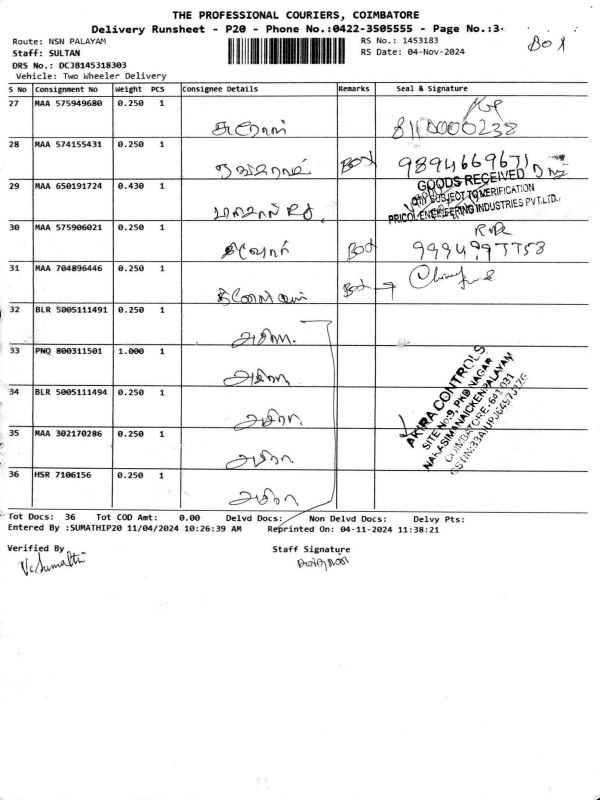 THE PROFESSIONAL COURIERS, COIMBATORE
Delivery Runsheet - P20 - Phone No.:0422-3505555 - Page No.:3
Route: NSN PALAYAM RS No.: 1453183
Staff: SULTAN RS Date: 04-Nov-2024
DRS No.: DCJB145318303
Vehicle: Two Wheeler Delivery
S No Consignment No Weight PCS Consignee Details Remarks Seal & Signature
27 MAA 575949680 0.250 1
28 MAA 574155431 0.250 1
9894669671
GOODS RECEIVED
29 MAA 650191724 0.430 1
QTY SUBJECT TO VERIFICATION
PRICOL ENGINEERING INDUSTRIES PVT.LTD.,
30 MAA 575906021 0.250 1
31 MAA 704896446 0.250 1
32 BLR 5005111491 0.250 1
அகிரா
33 PNQ 800311501 1.000 1
அகிரா
AKIRA CONTROLS
SITE No:9, PKD NAGAR
NARASIMANAICKENPALAYAM
COIMBATORE-641 031
34 BLR 5005111494 0.250 1
அகிரா
35 MAA 302170286 0.250 1
அகிரா
36 HSR 7106156 0.250 1
அகிரா
Tot Docs: 36 Tot COD Amt: 0.00 Delvd Docs: Non Delvd Docs: Delvy Pts:
Entered By :SUMATHIP20 11/04/2024 10:26:39 AM Reprinted On: 04-11-2024 11:38:21
Verified By Staff Signature
Vc Sumathi